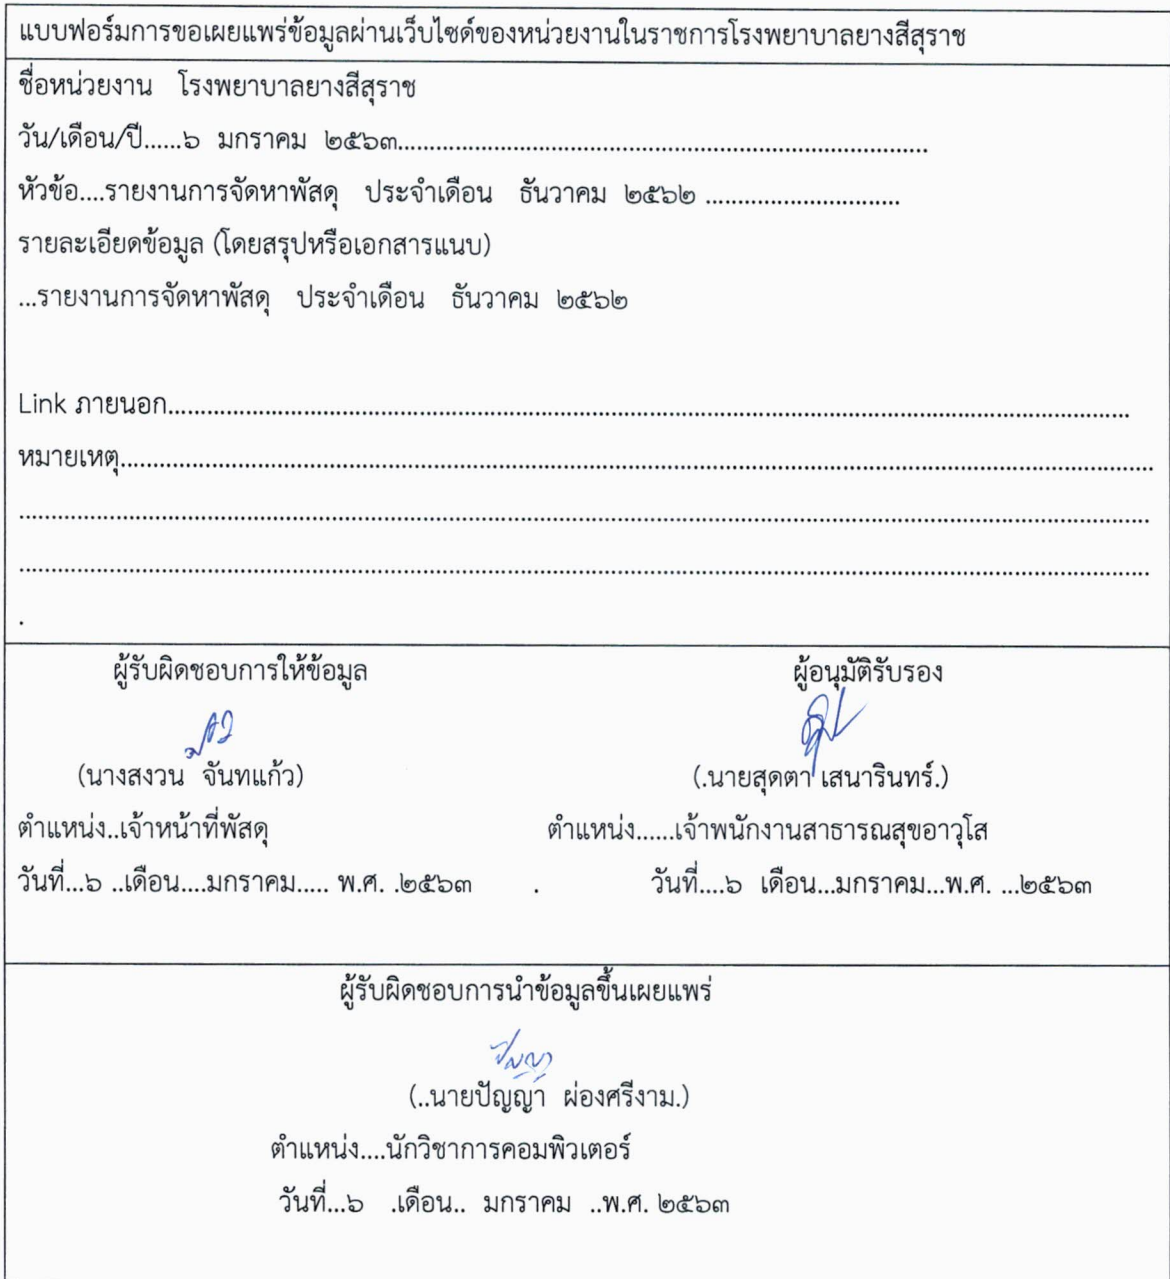 แบบฟอร์มการขอเผยแพร่ข้อมูลผ่านเว็บไซด์ของหน่วยงานในราชการโรงพยาบาลยางสีสุราช
ชื่อหน่วยงาน โรงพยาบาลยางสีสุราช
วัน/เดือน/ปี......๖ มกราคม ๒๕๖๓..........................................................................................
หัวข้อ....รายงานการจัดหาพัสดุ ประจำเดือน ธันวาคม ๒๕๖๒ .................................
รายละเอียดข้อมูล (โดยสรุปหรือเอกสารแนบ)
...รายงานการจัดหาพัสดุ ประจำเดือน ธันวาคม ๒๕๖๒
Link ภายนอก....................................................................................................................................
หมายเหตุ..........................................................................................................................................
..........................................................................................................................................................
..........................................................................................................................................................
.
ผู้รับผิดชอบการให้ข้อมูล ผู้อนุมัติรับรอง
(นางสงวน จันทแก้ว) (.นายสุดตา เสนารินทร์.)
ตำแหน่ง..เจ้าหน้าที่พัสดุ ตำแหน่ง......เจ้าพนักงานสาธารณสุขอาวุโส
วันที่...๖ ..เดือน....มกราคม..... พ.ศ. .๒๕๖๓ . วันที่....๖ เดือน...มกราคม...พ.ศ. ...๒๕๖๓
ผู้รับผิดชอบการนำข้อมูลขึ้นเผยแพร่
ปัญญา
(..นายปัญญา ผ่องศรีงาม.)
ตำแหน่ง....นักวิชาการคอมพิวเตอร์
วันที่...๖ .เดือน.. มกราคม ..พ.ศ. ๒๕๖๓